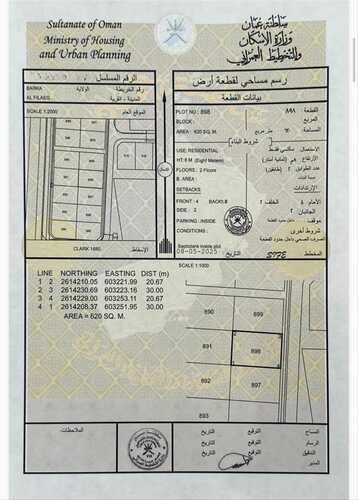 Sultanate of Oman
Ministry of Housing
and Urban Planning
سلطنة عمان
وزارة الإسكان
والتخطيط العمراني
الرقم المسلسل
رسم مساحي لقطعة أرض
BARKA
الولاية
رقم الخريطة
AL FILAES
المدينة - القرية
بيانات القطعة
SCALE 1:2000
الموقع العام
PLOT NO : 898
القطعة
BLOCK :
المربع
AREA : 620 SQ. M.
متر مربع
المساحة
شروط البناء
الاستعمال
سكني فقط
HT: 8 M (Eight Meters)
الارتفاع
FLOORS : 2 Floors
عدد الطوابق
B. AREA :
SETBACKS
الارتدادات
FRONT : 4 BACK:5
الأمام ٤
الخلف
SIDE : 2
الجانبان ٢
PARKING : INSIDE
موقف
OTHER CONDITION
شروط أخرى
الصرف الصحي داخل حدود القطعة
CLARK 1880.
الإسقاط
08-05-2025
التاريخ
المخطط
SCALE 1:1000
LINE NORTHING EASTING DIST (m)
1 2 2614210.05 603221.99 20.67
2 3 2614230.69 603223.16 30.00
3 4 2614229.00 603253.11 20.67
4 1 2614208.37 603251.95 30.00
AREA = 620 SQ. M.
890
899
891
898
892
897
893
الملاحظات:
المساح
التوقيع
التاريخ
الرسام
التوقيع
التاريخ
التدقيق
التوقيع
التاريخ
المدير
التوقيع
التاريخ